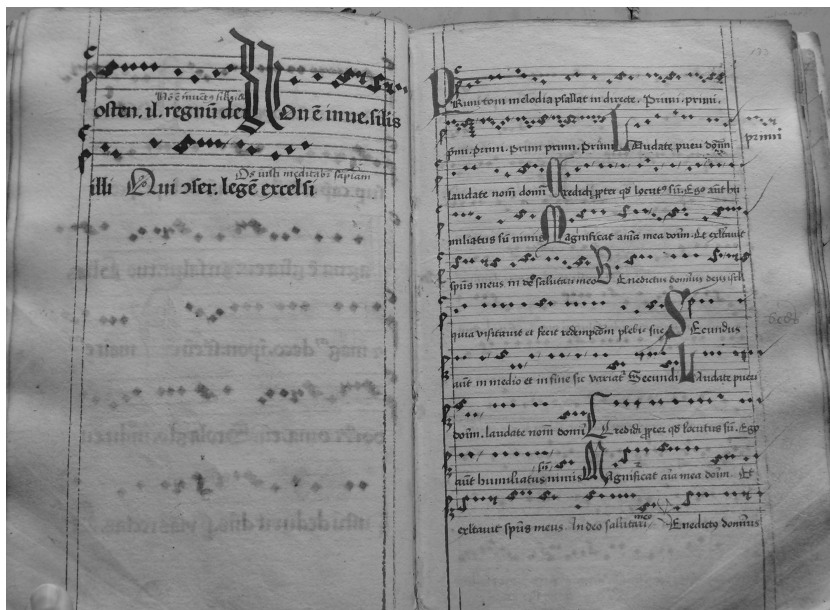 Nō ē inuētꝰ silis
osten. il. regnū dei Non ē inue. silis
Os iusti meditabit sapiam
illi Qui ɔser. legē excelsi
193
Primi toni melodia psallat in directe. Primi. primi.
primi. primi. primi primi. primi Laudate pueri domm
primi
laudate nom̄ domi Credidi ꝓpter qd locutꝰ sū. Ego aūt hu
miliatus sū nimis Magnificat aīa mea dom̄. Et exltauit
spūs meus in deo salutari meo Benedictus dominus deus isrl
quia visitauit et fecit redempcōm plebis sue Secundus
aūt in medio et in fine sic variatʳ Secundi Laudate pueri
dom̄. laudate nom̄ domi Credidi ꝓpter qd locutus sū. Ego
aūt humiliatus sū nimis Magnificat aīa mea dom̄. Et
exltauit spūs meus. In deo salutari meo Benedictꝰ domīus